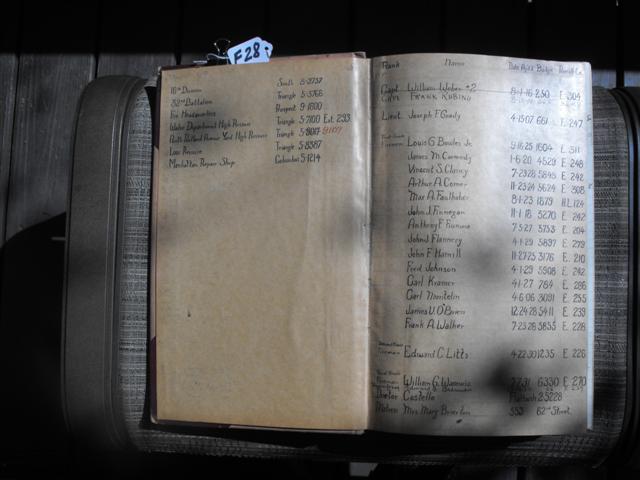 F28
16th Division South 8-3737
32nd Battalion Triangle 5-3766
Fire Headquarters Prospect 9-1600
Water Department High Pressure Triangle 5-7100 Ext. 293
North Portland Avenue Yard High Pressure Triangle 5-
Low Pressure Triangle 5-8587
Manhattan Repair Shop Columbus 5-1214
Rank Name Date Ap'td Badge
Capt. William Weber #2 8-1-16 250 E. 304
Capt. FRANK RUBINO
Lieut. Joseph F. Grady 4-15-07 661 E. 247
Fireman Louis G. Bowles Jr. 9-16-25 1604 E. 311
James M. Carmody 1-6-20 4529 E. 248
Vincent S. Clancy 7-23-28 5845 E. 242
Arthur A. Comer 11-23-24 5624 E. 308
Max A. Faulhaber 8-1-23 1879 H.L. 124
John J. Finnegan 11-1-18 5270 E. 242
Anthony F. 7-5-27 3753 E. 204
John J. Flannery 4-1-29 5897 E. 279
John F. Hamill 11-27-25 3176 E. 210
Fred Johnson 4-1-29 5908 E. 242
Carl Kramer 4-1-27 764 E. 286
Carl 4-6-06 3091 E. 255
James V. O'Brien 12-24-28 5411 E. 239
Frank A. Walker 7-23-28 5855 E. 228
Fireman Edward C. Litts 4-22-30 1235 E. 226
Fireman William G. 7-7-31 6330 E. 270
Doctor Costello Flatbush 2-5228
Matron Mrs. Mary Brierton 553 62nd Street